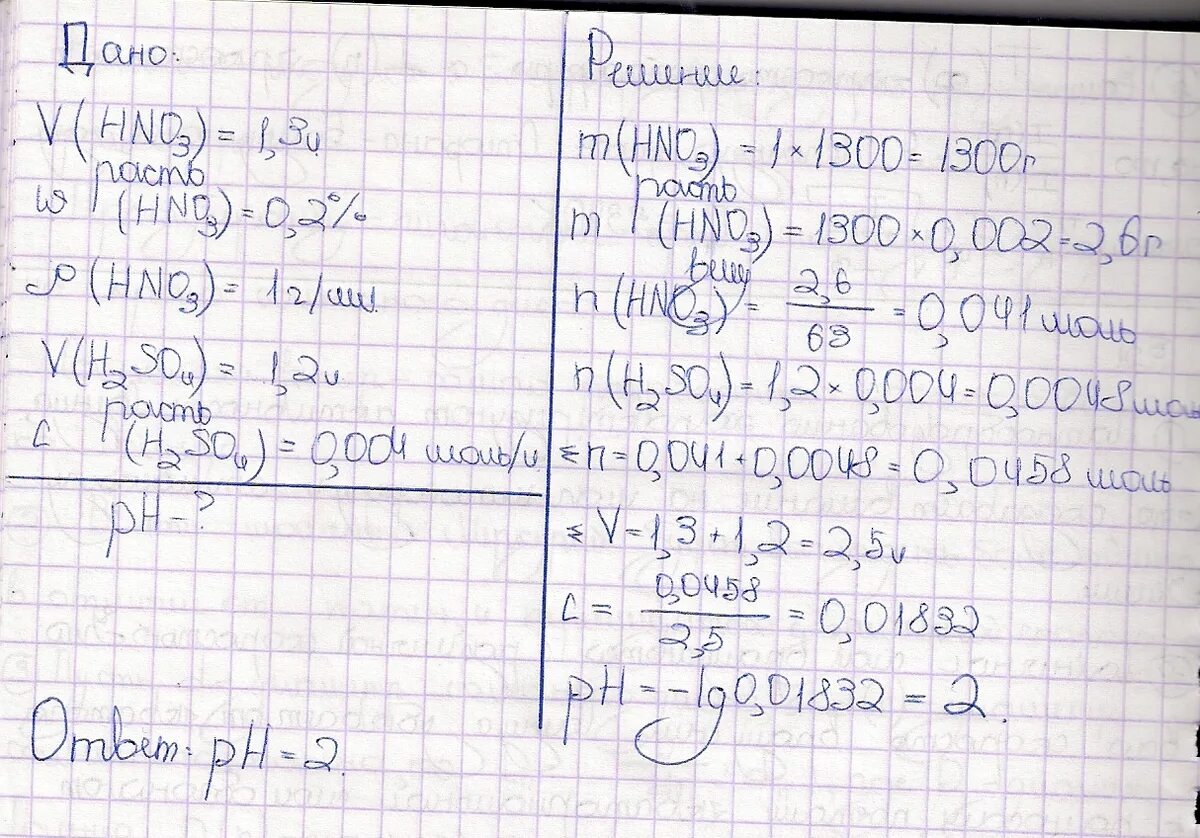 Дано:
V(HNO₃) = 1,3л
раств
ω (HNO₃) = 0,2%
ρ(HNO₃) = 1 г/мл.
V(H₂SO₄) = 1,2л
раств
C (H₂SO₄) = 0,004 моль/л
pH-?
Ответ: pH = 2.
Решение:
m(HNO₃) = 1 × 1300 = 1300г
раств
m (HNO₃) = 1300 × 0,002 = 2,6г
вещ
n(HNO₃) = 2,6 / 63 = 0,041 моль
n(H₂SO₄) = 1,2 × 0,004 = 0,0048 моль
Σ n = 0,041 + 0,0048 = 0,0458 моль
Σ V = 1,3 + 1,2 = 2,5л
C = 0,0458 / 2,5 = 0,01832
pH = -lg0,01832 = 2.